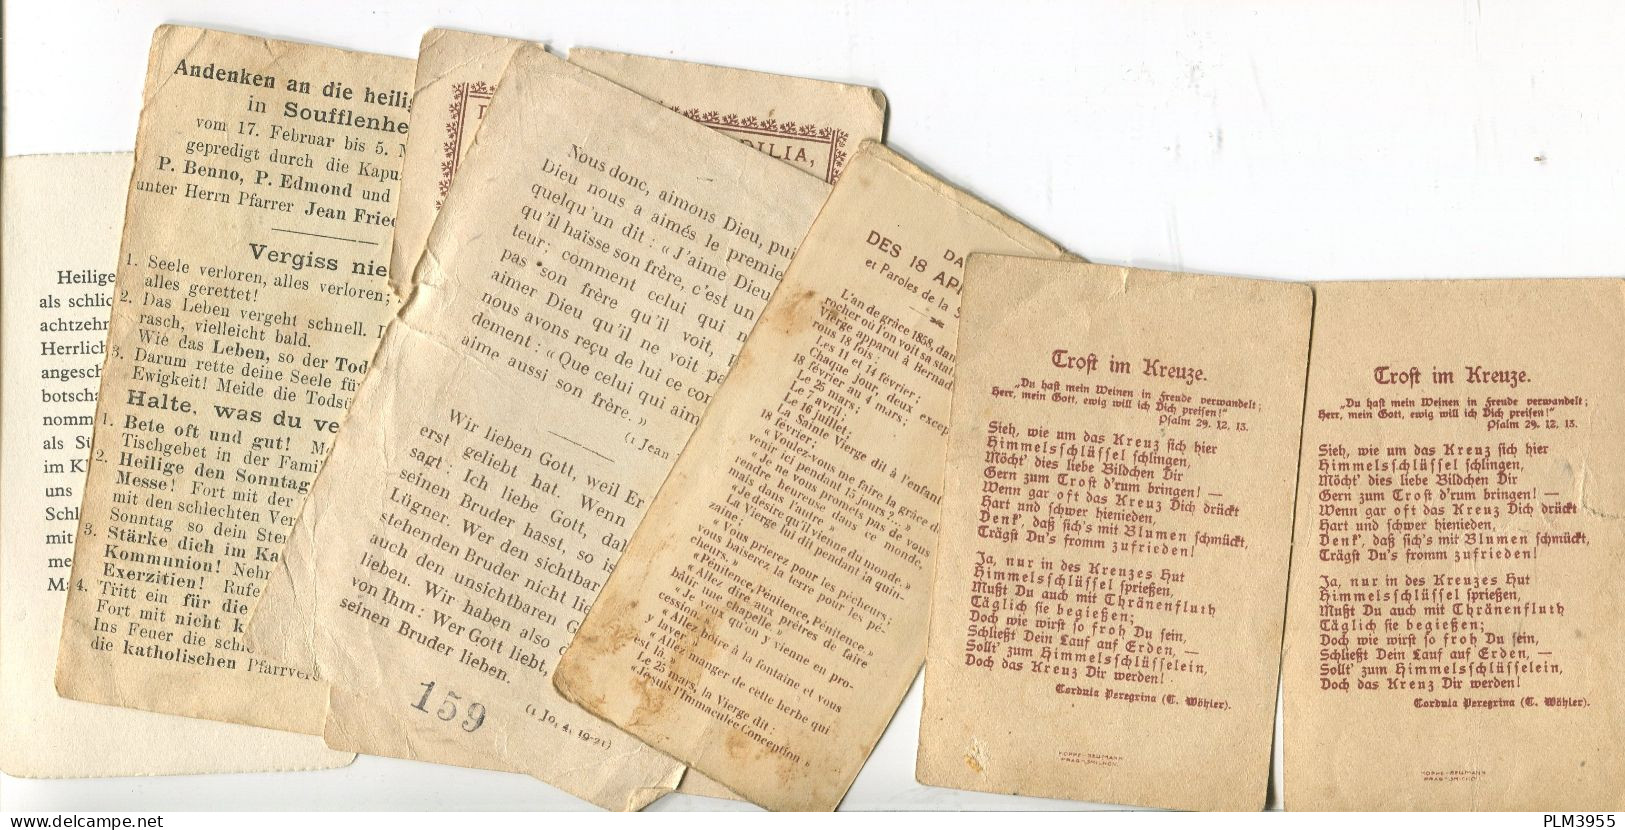 Heilige
als schlic
achtzehn
Herrlich
angesch
botscha
nomm
als Sü
im Kl
uns
Schl
mit
me
Ma
Andenken an die heilig
in Soufflenhe
vom 17. Februar bis 5. M
gepredigt durch die Kapu
P. Benno, P. Edmond und
unter Herrn Pfarrer Jean Fried
Vergiss nie
1. Seele verloren, alles verloren;
alles gerettet!
2. Das Leben vergeht schnell. D
rasch, vielleicht bald.
Wie das Leben, so der Tod
3. Darum rette deine Seele für
Ewigkeit! Meide die Todsü
Halte, was du ve
1. Bete oft und gut! Mo
Tischgebet in der Famil
2. Heilige den Sonntag
Messe! Fort mit der
mit den schlechten Ver
Sonntag so dein Ster
3. Stärke dich im Ka
Kommunion! Nehn
Exerzitien! Rufe
4. Tritt ein für die
Fort mit nicht k
Ins Feuer die schl
die katholischen Pfarrver
DILIA,
Nous donc, aimons Dieu, pui
Dieu nous a aimés le premie
quelqu'un dit : « J'aime Dieu
qu'il haïsse son frère, c'est un
teur; comment celui qui n
pas son frère qu'il voit, p
aimer Dieu qu'il ne voit pa
nous avons reçu de lui ce com
dement : « Que celui qui aim
aime aussi son frère. »
(1 Jean
Wir lieben Gott, weil Er
erst geliebt hat. Wenn
sagt: Ich liebe Gott, dab
seinen Bruder hasst, so is
Lügner. Wer den sichtbar
stehenden Bruder nicht lie
auch den unsichtbaren G
lieben. Wir haben also d
von Ihm: Wer Gott liebt,
seinen Bruder lieben.
(1 Jo, 4, 19-21)
159
DA
DES 18 AP
et Paroles de la S
L'an de grâce 1858, dan
rocher où l'on voit sa stat
Vierge apparut à Bernad
rous 18 fois :
Les 11 et 14 février;
Chaque jour, deux excep
18 février au 4 mars;
Le 25 mars;
Le 7 avril;
Le 16 juillet;
La Sainte Vierge dit à l'enfant
18 février:
« Voulez-vous me faire la grâce d
venir ici pendant 15 jours?.. »
« Je ne vous promets pas de vous
rendre heureuse dans ce monde,
mais dans l'autre »
« Je désire qu'il vienne du monde. »
La Vierge lui dit pendant la quin-
zaine;
« Vous prierez pour les pécheurs;
vous baiserez la terre pour les pé-
cheurs. »
« Pénitence, Pénitence, Pénitence. »
« Allez dire aux prêtres de faire
bâtir une chapelle »
« Je veux qu'on y vienne en pro-
cession. »
« Allez boire à la fontaine et vous
y laver »
« Allez manger de cette herbe qui
est là »
Le 25 mars, la Vierge dit :
« Je suis l'Immaculée Conception »
Trost im Kreuze.
„Du hast mein Weinen in Freude verwandelt;
Herr, mein Gott, ewig will ich Dich preisen!“
Psalm 29. 12. 13.
Sieh, wie um das Kreuz sich hier
Himmelsschlüssel schlingen,
Möcht' dies liebe Bildchen Dir
Gern zum Trost d'rum bringen! —
Wenn gar oft das Kreuz Dich drückt
Hart und schwer hienieden,
Denk', daß sich's mit Blumen schmückt,
Trägst Du's fromm zufrieden!
Ja, nur in des Kreuzes Hut
Himmelsschlüssel sprießen,
Mußt Du auch mit Thränenfluth
Täglich sie begießen;
Doch wie wirst so froh Du sein,
Schließt Dein Lauf auf Erden, —
Sollt' zum Himmelsschlüsselein,
Doch das Kreuz Dir werden!
Cordula Peregrina (C. Wöhler).
HOPPE-REUMANN
PRAG-SMICHOV.
Trost im Kreuze.
„Du hast mein Weinen in Freude verwandelt;
Herr, mein Gott, ewig will ich Dich preisen!“
Psalm 29. 12. 13.
Sieh, wie um das Kreuz sich hier
Himmelsschlüssel schlingen,
Möcht' dies liebe Bildchen Dir
Gern zum Trost d'rum bringen! —
Wenn gar oft das Kreuz Dich drückt
Hart und schwer hienieden,
Denk', daß sich's mit Blumen schmückt,
Trägst Du's fromm zufrieden!
Ja, nur in des Kreuzes Hut
Himmelsschlüssel sprießen,
Mußt Du auch mit Thränenfluth
Täglich sie begießen;
Doch wie wirst so froh Du sein,
Schließt Dein Lauf auf Erden, —
Sollt' zum Himmelsschlüsselein,
Doch das Kreuz Dir werden!
Cordula Peregrina (C. Wöhler).
HOPPE-REUMANN
PRAG-SMICHO
delcampe.net
PLM3955